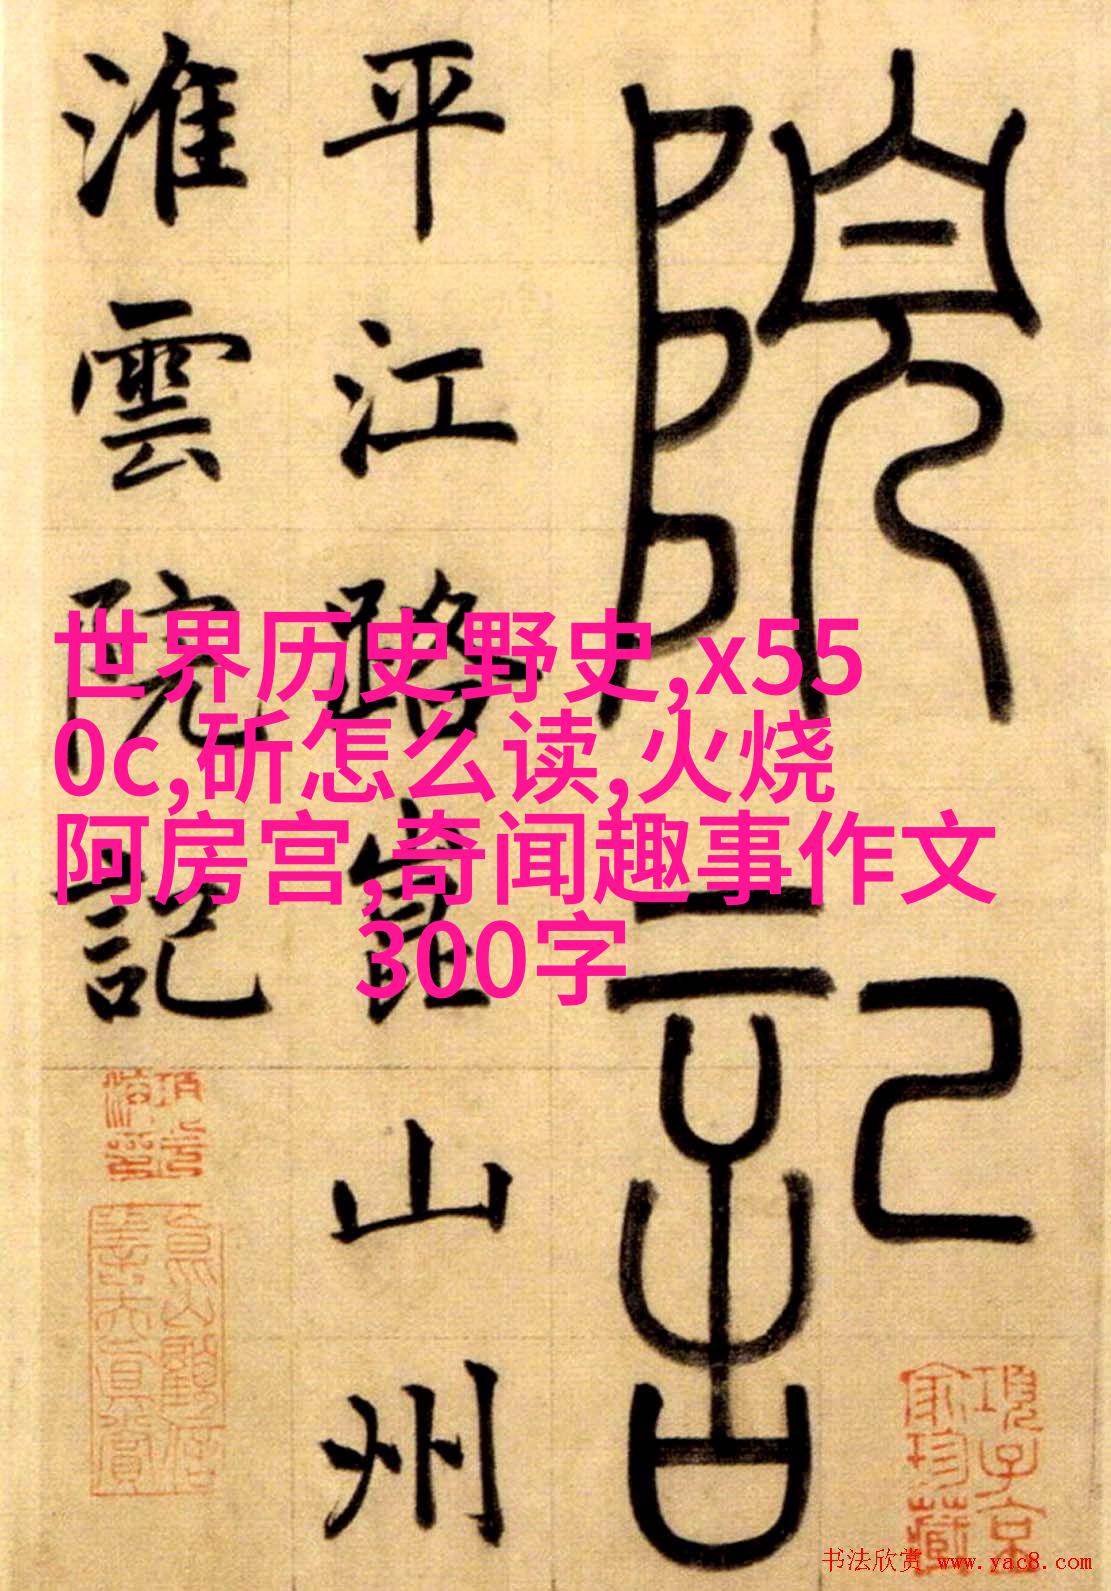 院記
平江路崑山州
淮雲院記
世界历史野史,x55
0c,斫怎么读,火烧
阿房宫,奇闻趣事作文
300字
項子京
家珍藏
书法欣赏 www.yac8.com